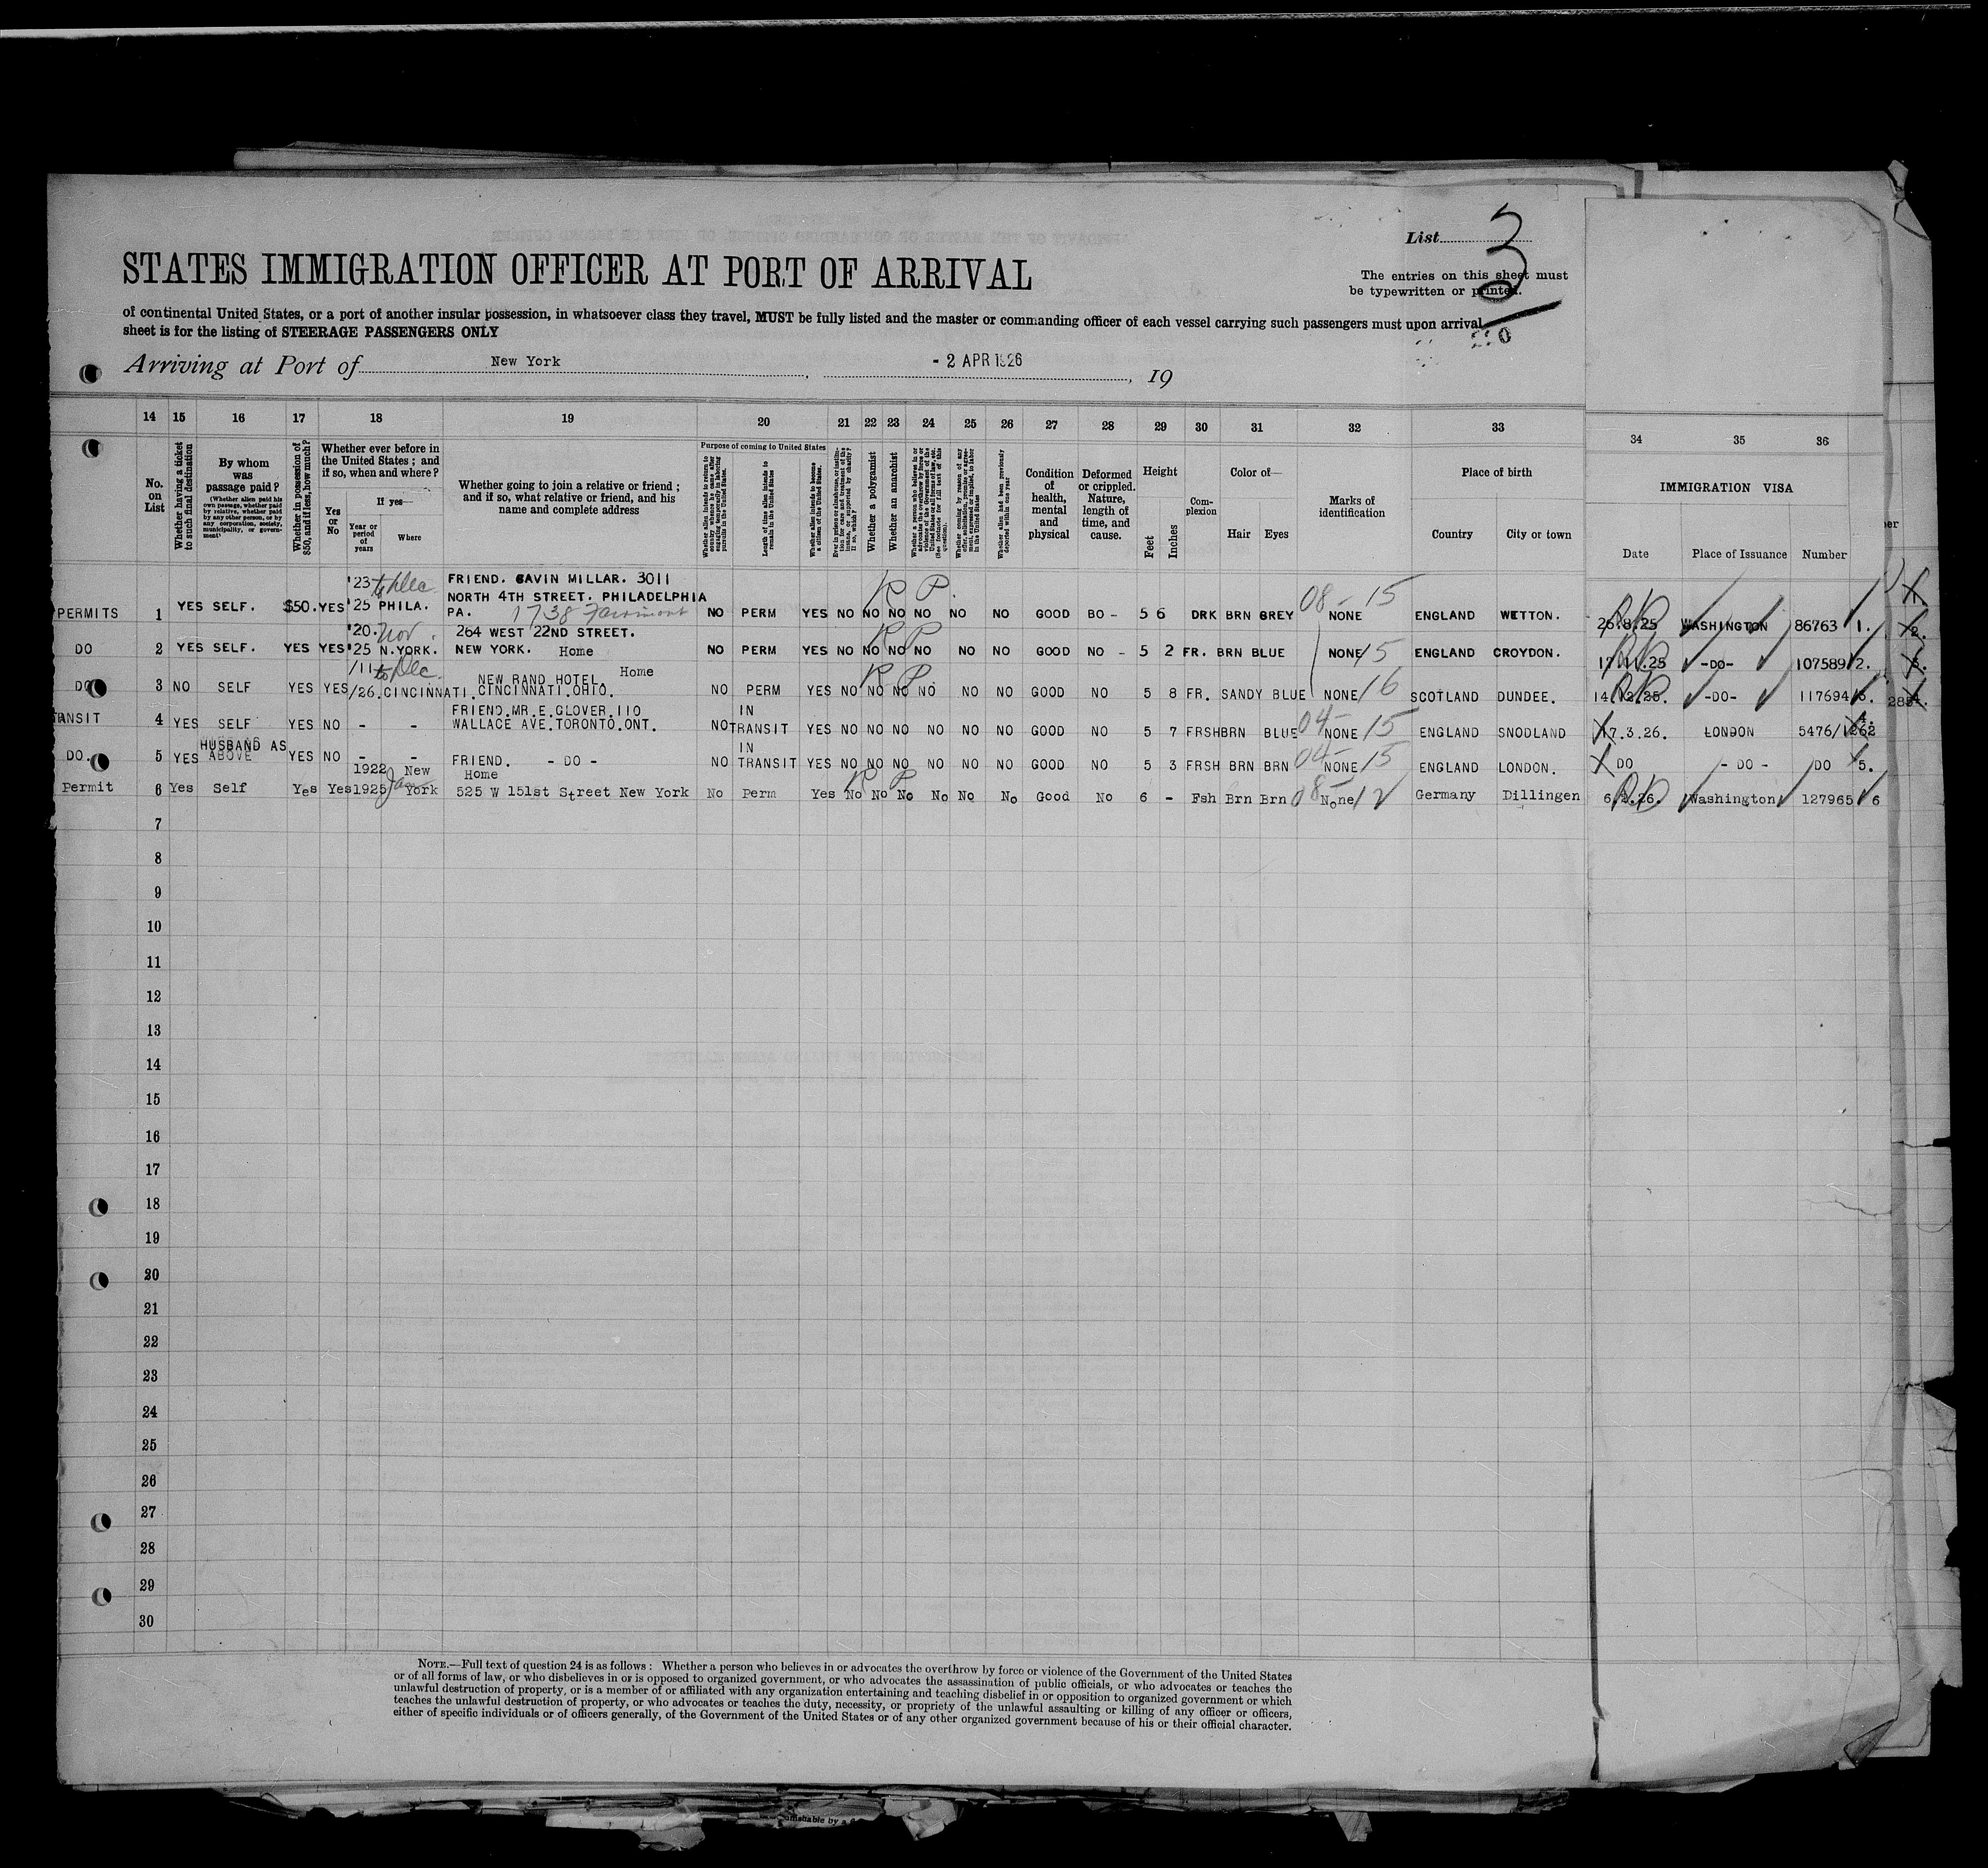 List 3
STATES IMMIGRATION OFFICER AT PORT OF ARRIVAL
The entries on this sheet must
be typewritten or printed.
of continental United States, or a port of another insular possession, in whatsoever class they travel, MUST be fully listed and the master or commanding officer of each vessel carrying such passengers must upon arrival
sheet is for the listing of STEERAGE PASSENGERS ONLY
Arriving at Port of New York, - 2 APR 1926, 19
14 15 16 17 18 19 20 21 22 23 24 25 26 27 28 29 30 31 32 33 34 35 36
No. on List
Whether having a ticket to such final destination
By whom was passage paid?
(Whether alien paid his own passage, whether paid by relative, whether paid by any other person, or by any corporation, society, municipality, or government)
Whether in possession of $50, and if less, how much?
Whether ever before in the United States; and if so, when and where?
Yes or No
If yes—
Year or period of years
Where
Whether going to join a relative or friend; and if so, what relative or friend, and his name and complete address
Purpose of coming to United States
Whether alien intends to return to country whence he came after engaging temporarily in laboring pursuits in the United States.
Length of time alien intends to remain in the United States
Whether alien intends to become a citizen of the United States.
Ever in prison or almshouse, or institution for care and treatment of the insane, or supported by charity? If so, which?
Whether a polygamist
Whether an anarchist
Whether a person who believes in or advocates the overthrow by force or violence of the Government of the United States or all forms of law, etc. (See footnote for full text of this question).
Whether coming by reason of any offer, solicitation, promise, or agreement, expressed or implied, to labor in the United States
Whether alien had been previously deported within one year
Condition of health, mental and physical
Deformed or crippled. Nature, length of time, and cause.
Height
Feet
Inches
Complexion
Color of—
Hair
Eyes
Marks of identification
Place of birth
Country
City or town
IMMIGRATION VISA
Date
Place of Issuance
Number
'23 to Dec FRIEND. GAVIN MILLAR. 3011
NORTH 4TH STREET. PHILADELPHIA
R P.
PERMITS 1 YES SELF. $50. YES '25 PHILA. PA. 1738 Fairmont NO PERM YES NO NO NO NO NO NO GOOD BO - 5 6 DRK BRN GREY 08-15 NONE ENGLAND WETTON. 26.8.25 WASHINGTON 86763 1.
'20. Nov. 264 WEST 22ND STREET.
R P
DO 2 YES SELF. YES YES '25 N.YORK. NEW YORK. Home NO PERM YES NO NO NO NO NO NO GOOD NO - 5 2 FR. BRN BLUE NONE 15 ENGLAND CROYDON. 17.11.25 -DO- 107589 2.
/11 to Dec. NEW RAND HOTEL Home
R P.
DO 3 NO SELF YES YES /26. CINCINNATI. CINCINNATI.OHIO. NO PERM YES NO NO NO NO NO NO GOOD NO 5 8 FR. SANDY BLUE NONE 16 SCOTLAND DUNDEE. 14.12.25. -DO- 117694
FRIEND.MR.E.GLOVER.110 IN
TRANSIT 4 YES SELF YES NO - - WALLACE AVE.TORONTO.ONT. NO TRANSIT YES NO NO NO NO NO NO GOOD NO 5 7 FRSH BRN BLUE 04- NONE 15 ENGLAND SNODLAND 17.3.26. LONDON 5476/1262 4.
HUSBAND AS IN
DO. 5 YES ABOVE YES NO - - FRIEND. - DO - NO TRANSIT YES NO NO NO NO NO NO GOOD NO 5 3 FRSH BRN BRN 04- NONE 15 ENGLAND LONDON. DO - DO - DO 5.
1922 New Home
R P
Permit 6 Yes Self Yes Yes 1925 Jan York 525 W 151st Street New York No Perm Yes No No No No No No Good No 6 - Fsh Brn Brn 08- None 12 Germany Dillingen 6.2.26. Washington 127965 6
7
8
9
10
11
12
13
14
15
16
17
18
19
20
21
22
23
24
25
26
27
28
29
30
NOTE.—Full text of question 24 is as follows: Whether a person who believes in or advocates the overthrow by force or violence of the Government of the United States
or of all forms of law, or who disbelieves in or is opposed to organized government, or who advocates the assassination of public officials, or who advocates or teaches the
unlawful destruction of property, or is a member of or affiliated with any organization entertaining and teaching disbelief in or opposition to organized government or which
teaches the unlawful destruction of property, or who advocates or teaches the duty, necessity, or propriety of the unlawful assaulting or killing of any officer or officers,
either of specific individuals or of officers generally, of the Government of the United States or of any other organized government because of his or their official character.